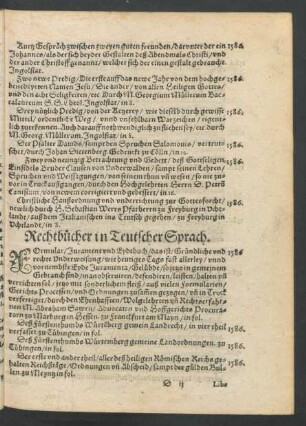 Kurtz Gespräch zwischen zweyen guten freunden / darunter der ein 1586.
Johannes / als der sich beyder Gestalten deß Abendmals Christi / vnd
der ander Christoff genannt / welcher sich der einen gestalt gebraucht.
Ingolstat.
Zwo newe Predig / Die erste auff das newe Jahr von dem hochge- 1586.
benedeyeten Namen Jesu / Die ander / von allen Heiligen Gottes /
vnd den acht Seligkeiten / rc. Durch M. Georgium Müllerum Bac-
calaureum S. S. Theol. Ingolstat / in 8.
Drey nützliche Predig / von der Ketzerey / wie dieselb durch gewisse 1586.
Mittel / ordentliche Weg / vnd vnfehlbare Warzeichen / eigent-
lich zuerkennen / Auch darauff nothwendiglich zufliehen sey / rc. durch
M. Georg Müllerum. Ingolstat / in 8.
Der Psalter Dauids / sampt den Sprüchen Salomonis / vertent- 1586.
schet / durch Johan Dietenberg. Gedruckt zu Cölln in
Zwey vnd neuntzig Betrachtung vnd Gebett / deß Gottseligen 1586.
Einsidels Bruder Clausen von Vnderwalden / sampt seinen Lehren /
Sprüchen vnd Weissagungen / von seinem thun vnd wesen / durch den
Ehrwirdigen Hochgelehrten Herren S. Petrum
Canisium / von newem corrigiert vnd gebessert / in
Christliche Haußordnung vnd vnderrichtung zur Gottesforcht / 1586.
neulich durch H. Sebastian Wero Pfarrherrn zu Freyburg in Vcht-
lande / auß dem Italianischen ins Teutsch gegeben / zu Freyburg in
Vchtlande / in 8.
Rechtbücher in Teutscher Sprach.
Formular / Jurament vnd Eydtbuch / das ist / Gründliche vnd 1586.
rechte Vnderweisung / wie heutiges Tags fast allerley / vnd
vornembste Eyde Juramenta / Gelübde / so jtzo in gemeinem
Gebrauch sind / in anbefohrnten / besondern / leisten / halten vñ
verrichten / rc. mit sonderlichem fleiß / auß vielen Formularien /
Gerichts Processen / vnd Ordnungen zusammen gezogen / vñ in Truck
verfertiget / durch den Ehenhafften / Wolgelehrten vñ Rechterfahr-
nen M. Abraham Sawrn / Aduocaten vnd Hoffgerichts Procura-
torn zu Marburg in Hessen. zu Franckfurt am Mayn / in fol.
Deß Fürstenthumbs Würtberg gemein Landrecht / in vier theil 1586.
verfaßt zu Tübingen / in fol.
Deß Fürstenthumbs Würtemberg gemeine Landordnungen. zu 1586.
Tübingen / in fol.
Der erste vnd ander theil / aller deß heiligen Römischen Reichs ge- 1586.
halten Reichßtäge / Ordnungen vñ Abscheid / sampt der gülden Bul-
len zu Meyntz in fol.
D ij
Libe